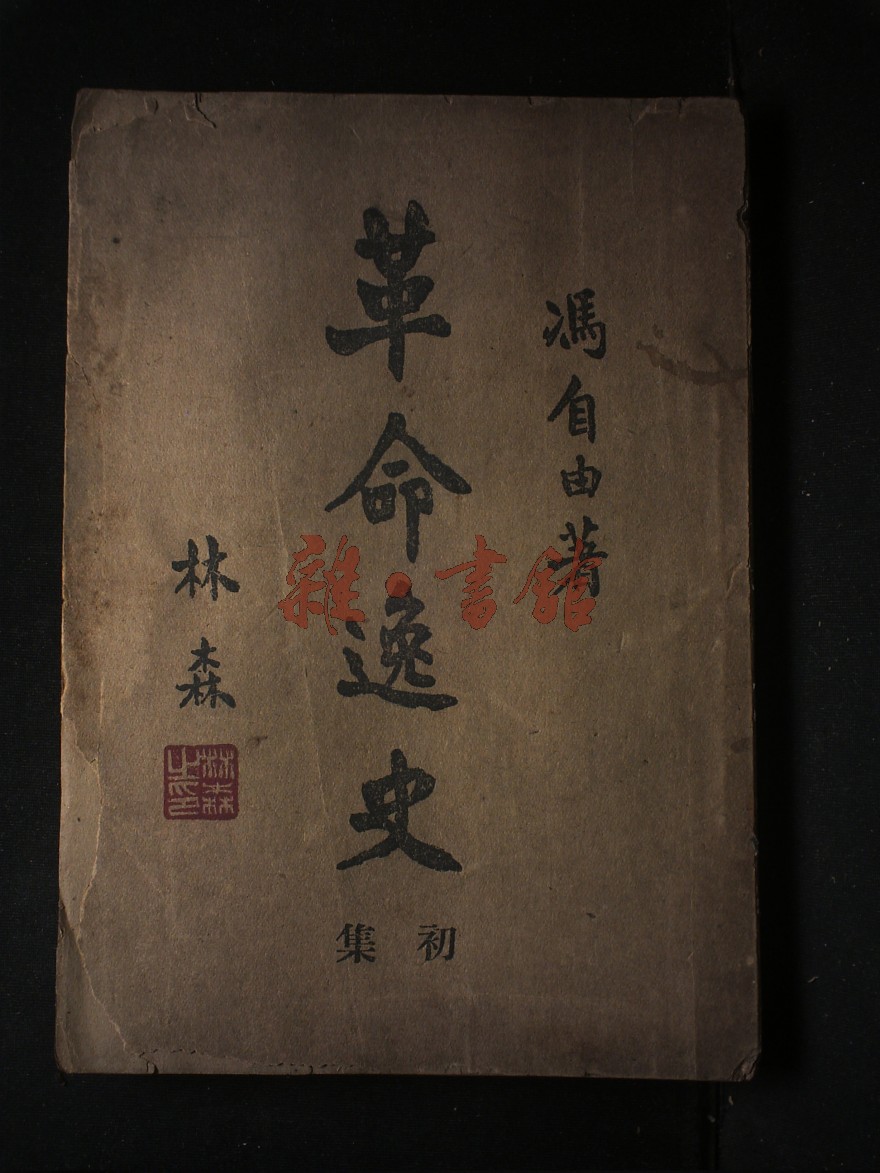 馮自由著
革命逸史
初集
林森
林森之印
雜·書館